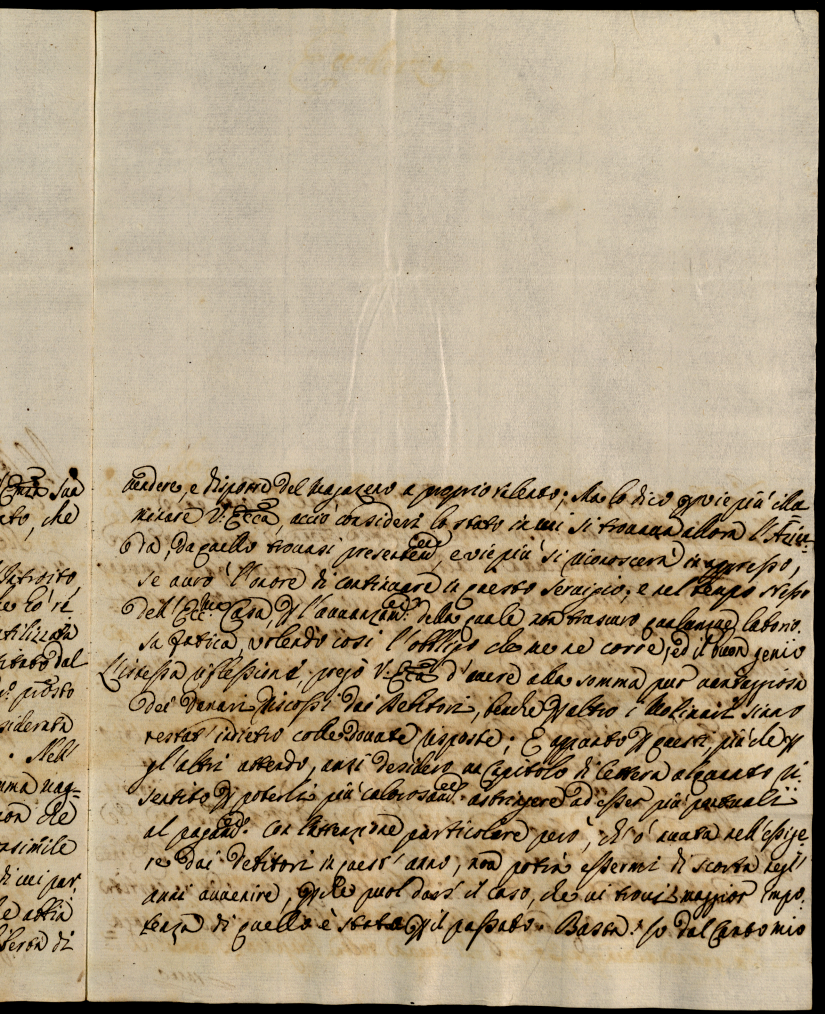 Sua
ato, che
Introito
ho ri
utilizzata
dal
siderata
. Nell'
mma mag=
non che
nsimile
di cui par.
he abbia
di
vendere, e disporre del magazeno a proprio talento; Ma lo dico p vie più illu
minare V. Ecca, acciò consideri lo stato in cui si trovava allora l'Azien=
da, da quello trovasi presentemte, e vie più si riconoscerà in appresso,
se avrò l'onore di continuare in questo servizio; e nel tempo stesso
dell'Eccma Casa, p l'avanzamto della quale non trascuro qualunque laborio.
sa fatica, volendo così l'obbligo che me ne corre, ed il buon genio
L'istessa riflessione, prego V. Ecca d'avere alla somma pur vantaggiosa
dei Denari riscossi dai Debitori, benche p altro i Molinari siano
restati indietro colle dovute risposte; E appunto p questi, più che p
gl'altri attendo, anzi desidero un Capitolo di lettera alquanto ri
sentito p poterli più astringere ad esser più puntuali
al pagamto. Con l'attenzione particolare però, ch'ò avuta nell'esige
re dai Debitori in quest'anno, non potrà essermi di scorta negl'
anni avvenire, p che puol darsi il caso, che vi trovi maggior impo.
tenza di quello è stata p il passato. Basta. Io dal Canto mio